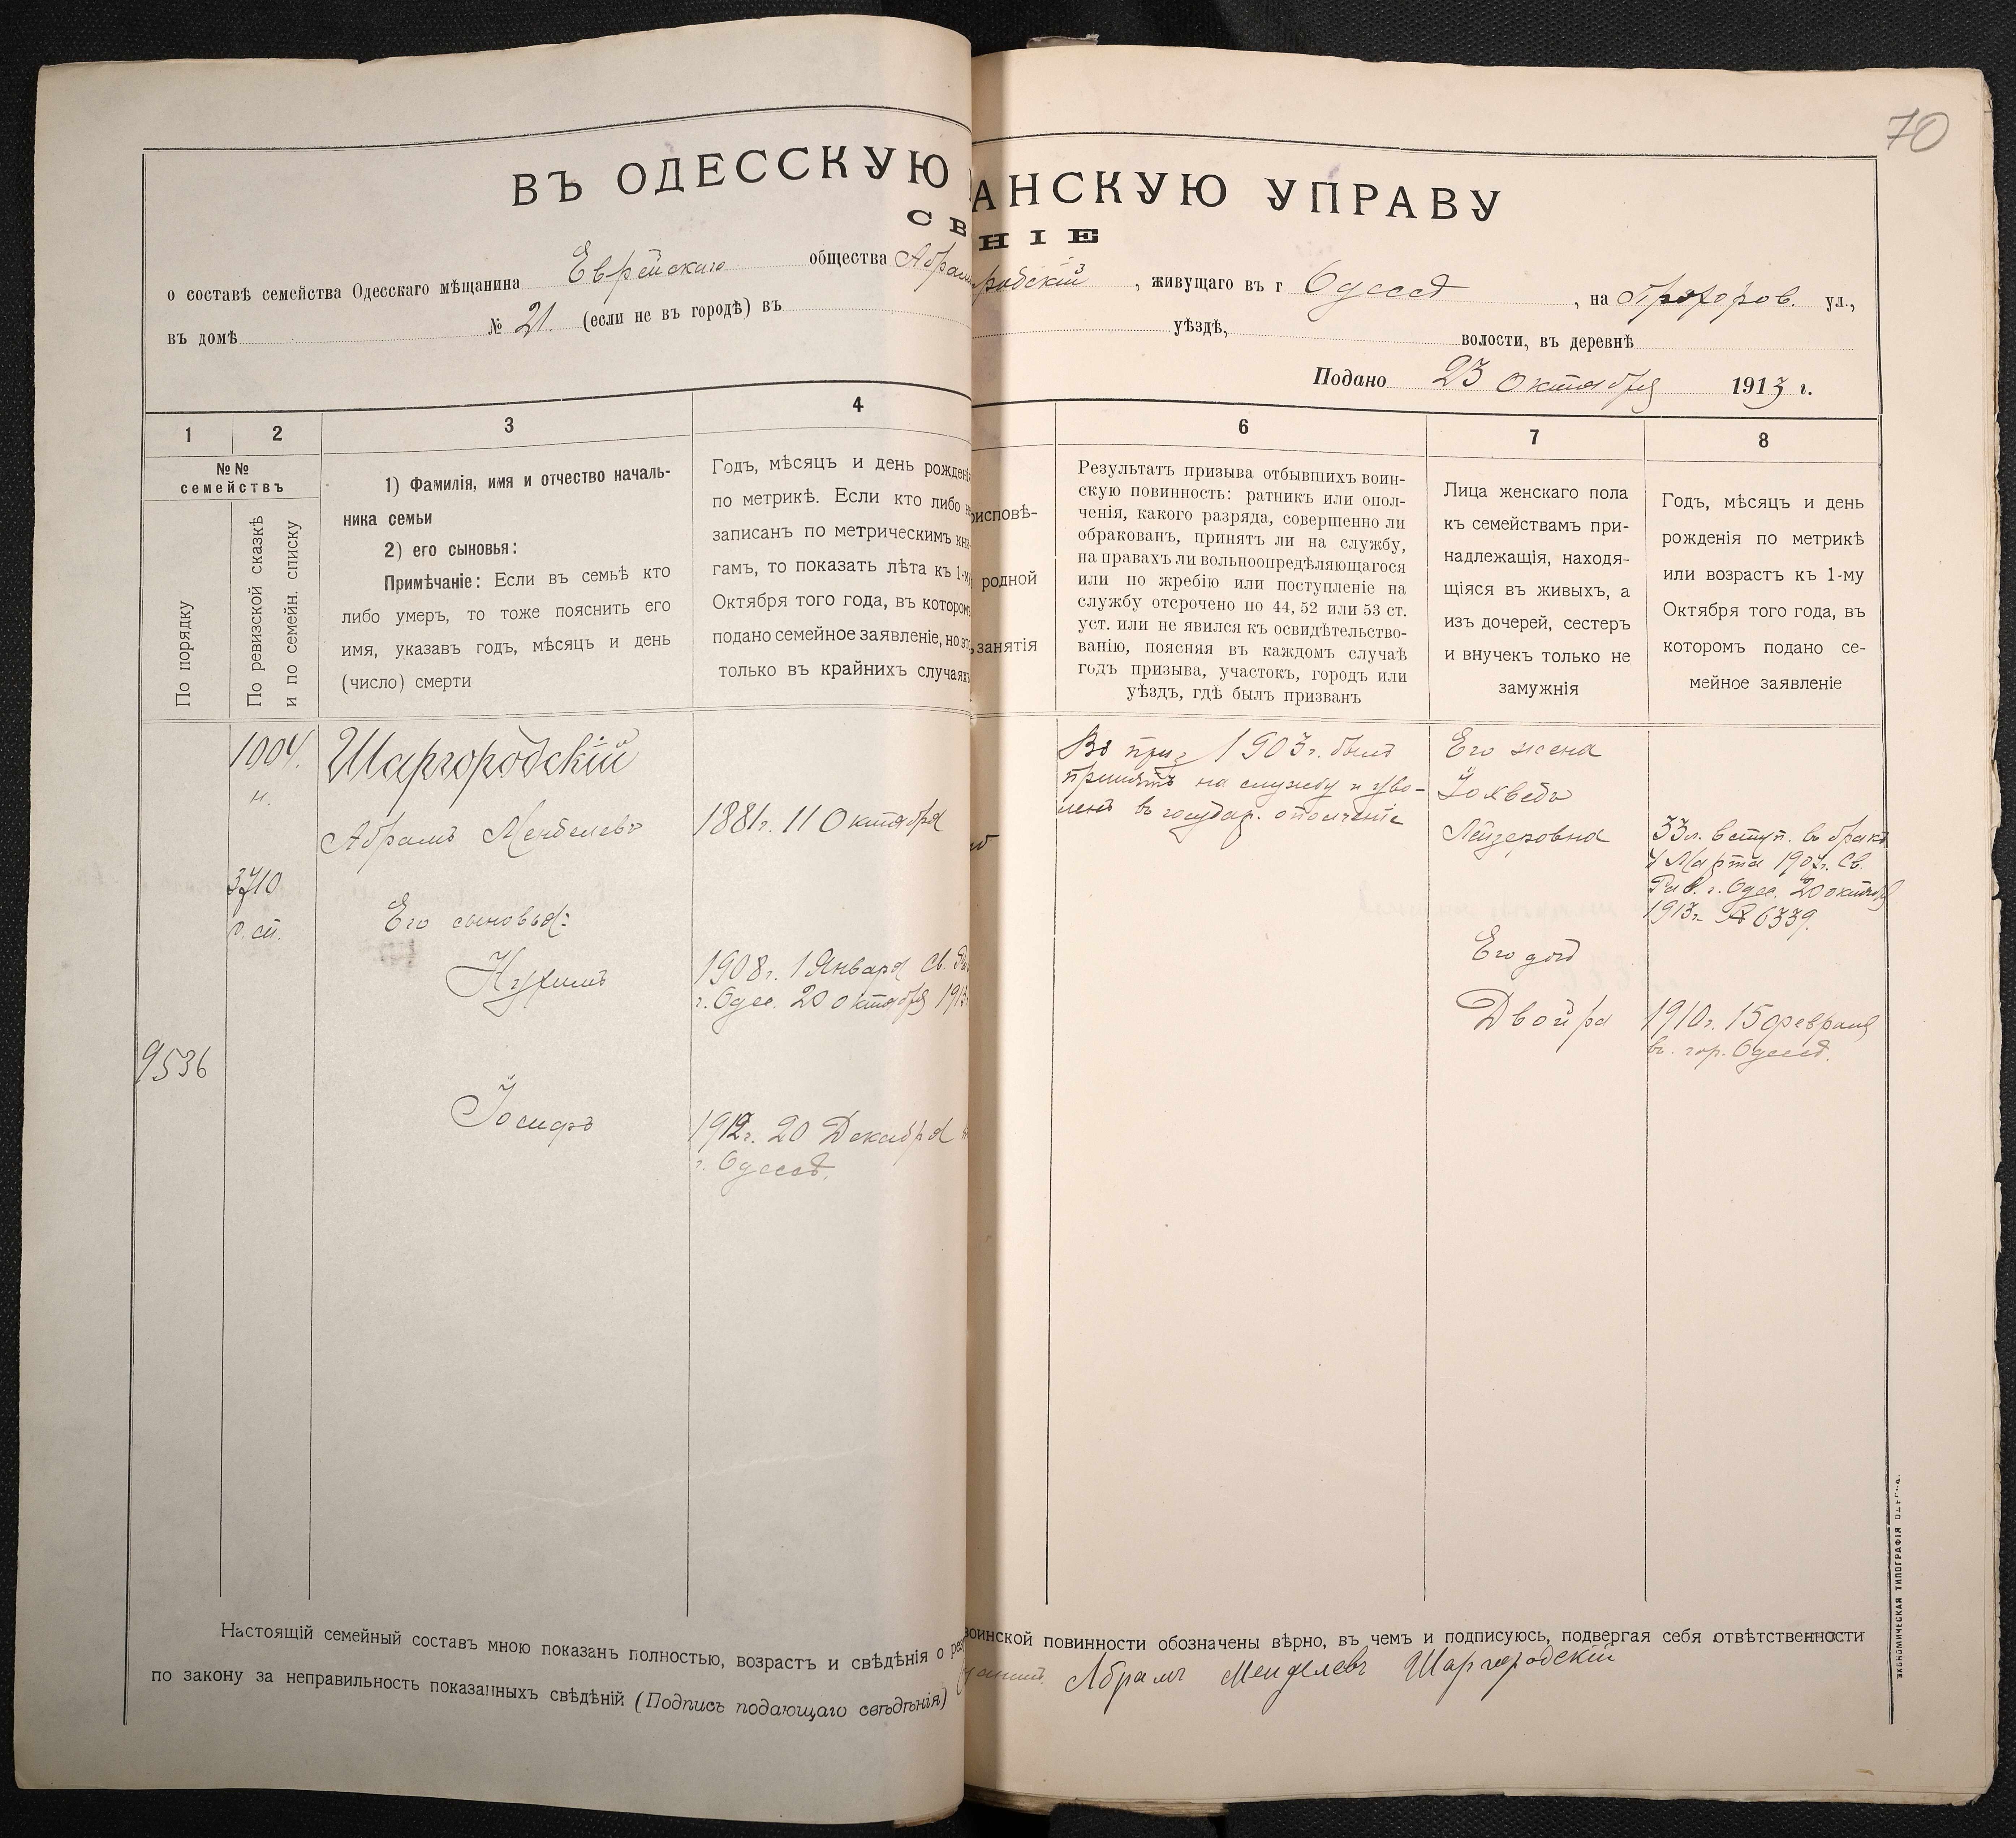 70
ВЪ ОДЕССКУЮ АНСКУЮ УПРАВУ
СВ НІЕ
о составѣ семейства Одесскаго мѣщанина Еврейскаго общества Абрам родскій , живущаго въ г Одессѣ , на Прохоров. ул.,
въ домѣ № 21. (если не въ городѣ) въ уѣздѣ, волости, въ деревнѣ
Подано 23 октября 1913 г.
1
2
3
4
6
7
8
№№
семействъ
По порядку
По ревизской сказкѣ
и по семейн. списку
1) Фамилія, имя и отчество началь-
ника семьи
2) его сыновья:
Примѣчаніе: Если въ семьѣ кто
либо умеръ, то тоже пояснить его
имя, указавъ годъ, мѣсяцъ и день
(число) смерти
Годъ, мѣсяцъ и день рожденія
по метрикѣ. Если кто либо не
записанъ по метрическимъ кни-
гамъ, то показать лѣта къ 1-му
Октября того года, въ которомъ
подано семейное заявленіе, но это
только въ крайнихъ случаяхъ
исповѣ-
родной
занятія
Результатъ призыва отбывшихъ воин-
скую повинность: ратникъ или опол-
ченія, какого разряда, совершенно ли
обракованъ, принятъ ли на службу,
на правахъ ли вольноопредѣляющагося
или по жребію или поступленіе на
службу отсрочено по 44, 52 или 53 ст.
уст. или не явился къ освидѣтельство-
ванію, поясняя въ каждомъ случаѣ
годъ призыва, участокъ, городъ или
уѣздъ, гдѣ былъ призванъ
Лица женскаго пола
къ семействамъ при-
надлежащія, находя-
щіяся въ живыхъ, а
изъ дочерей, сестеръ
и внучекъ только не
замужнія
Годъ, мѣсяцъ и день
рожденія по метрикѣ
или возрастъ къ 1-му
Октября того года, въ
которомъ подано се-
мейное заявленіе
9536
1004.
н.
3710
Шаргородскій
Абрамъ Менделевъ
Его сыновья:
Нухимъ
Іосифъ
1881г. 11 Октября
1908г. 1 Января Св. Ра
г. Одес. 20 октября 1913
1912г. 20 Декабря
г. Одессѣ.
Въ приз 1903г. былъ
принятъ на службу и уво-
ленъ въ государ. ополченіе
Его жена
Іохведъ
Лейзеровна
Его доч
Двойра
33л. вступ. въ бракъ
4 Марта 1907г. Св.
Рав. г. Одес. 20 октября
1913г. № 6339.
1910г. 15 февраля
въ гор. Одессѣ.
Настоящій семейный составъ мною показанъ полностью, возрастъ и свѣдѣнія о рез воинской повинности обозначены вѣрно, въ чемъ и подписуюсь, подвергая себя отвѣтственности
по закону за неправильность показанныхъ свѣдѣній (Подпись подающаго свѣдѣнія) Абрамъ Менделевъ Шаргородскій
ЭКОНОМИЧЕСКАЯ ТИПОГРАФІЯ